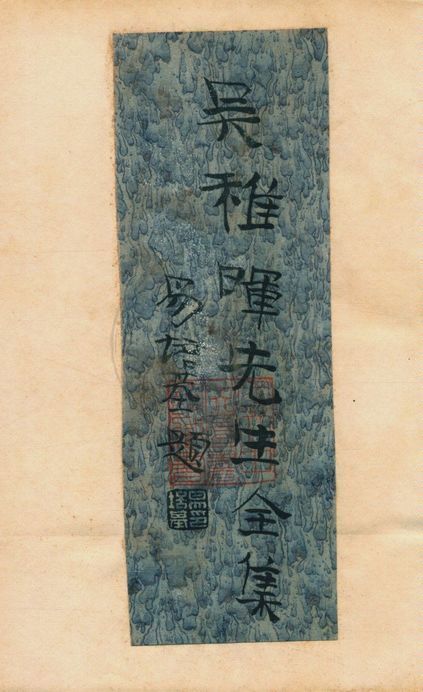 吳稚暉先生全集
易培基題